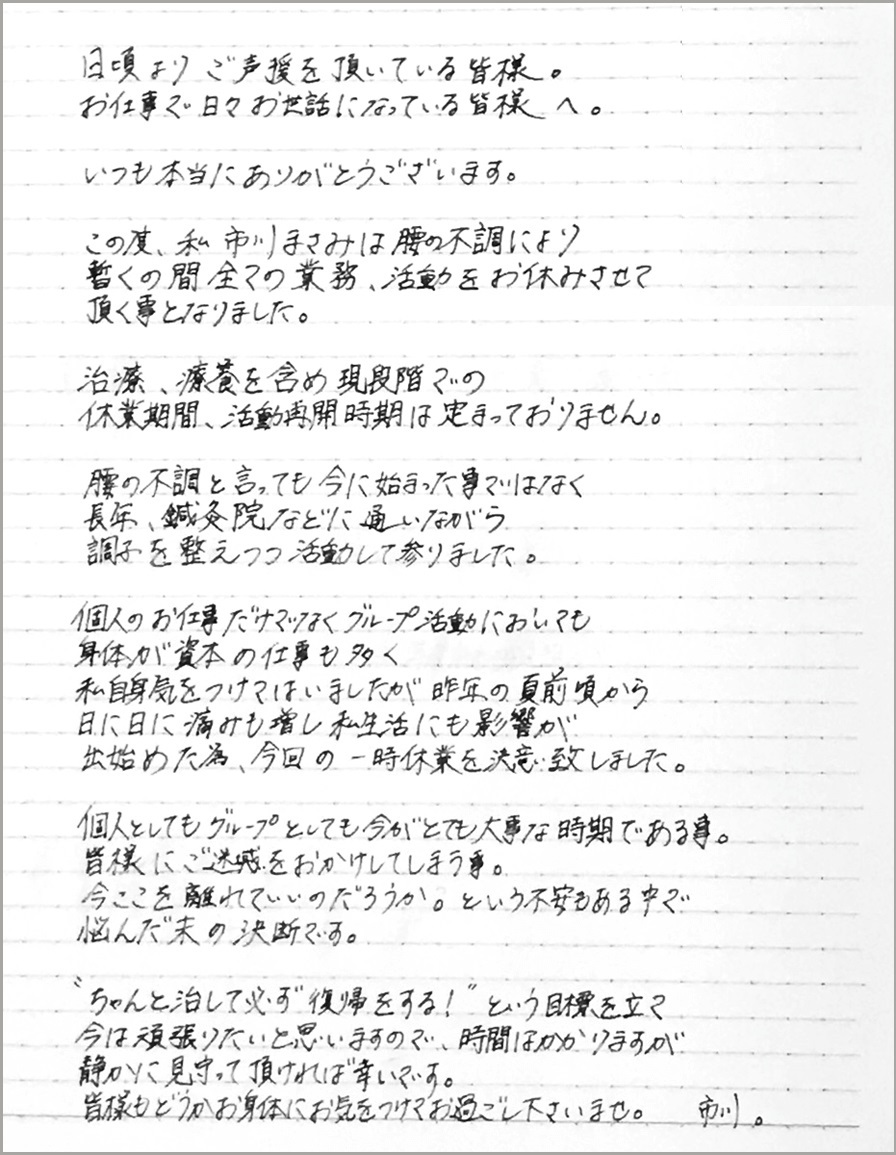 日頃より ご声援を頂いている皆様。
お仕事で日々お世話になっている皆様へ。
いつも本当にありがとうございます。
この度、私 市川まさみは腰の不調により
暫くの間全ての業務、活動をお休みさせて
頂く事となりました。
治療、療養を含め現段階での
休業期間、活動再開時期は定まっておりません。
腰の不調と言っても今に始まった事ではなく
長年、鍼灸院などに通いながら
調子を整えつつ活動して参りました。
個人のお仕事だけでなくグループ活動においても
身体が資本の仕事も多く
私自身気をつけてはいましたが昨年の夏前頃から
日に日に痛みも増し私生活にも影響が
出始めた為、今回の一時休業を決意致しました。
個人としてもグループとしても今がとても大事な時期である事。
皆様にご迷惑をおかけしてしまう事。
今ここを離れていいのだろうか。という不安もある中で
悩んだ末の決断です。
"ちゃんと治して必ず復帰をする!"という目標を立て
今は頑張りたいと思いますので、時間はかかりますが
静かに見守って頂ければ幸いです。
皆様もどうかお身体にお気をつけてお過ごし下さいませ。 市川。